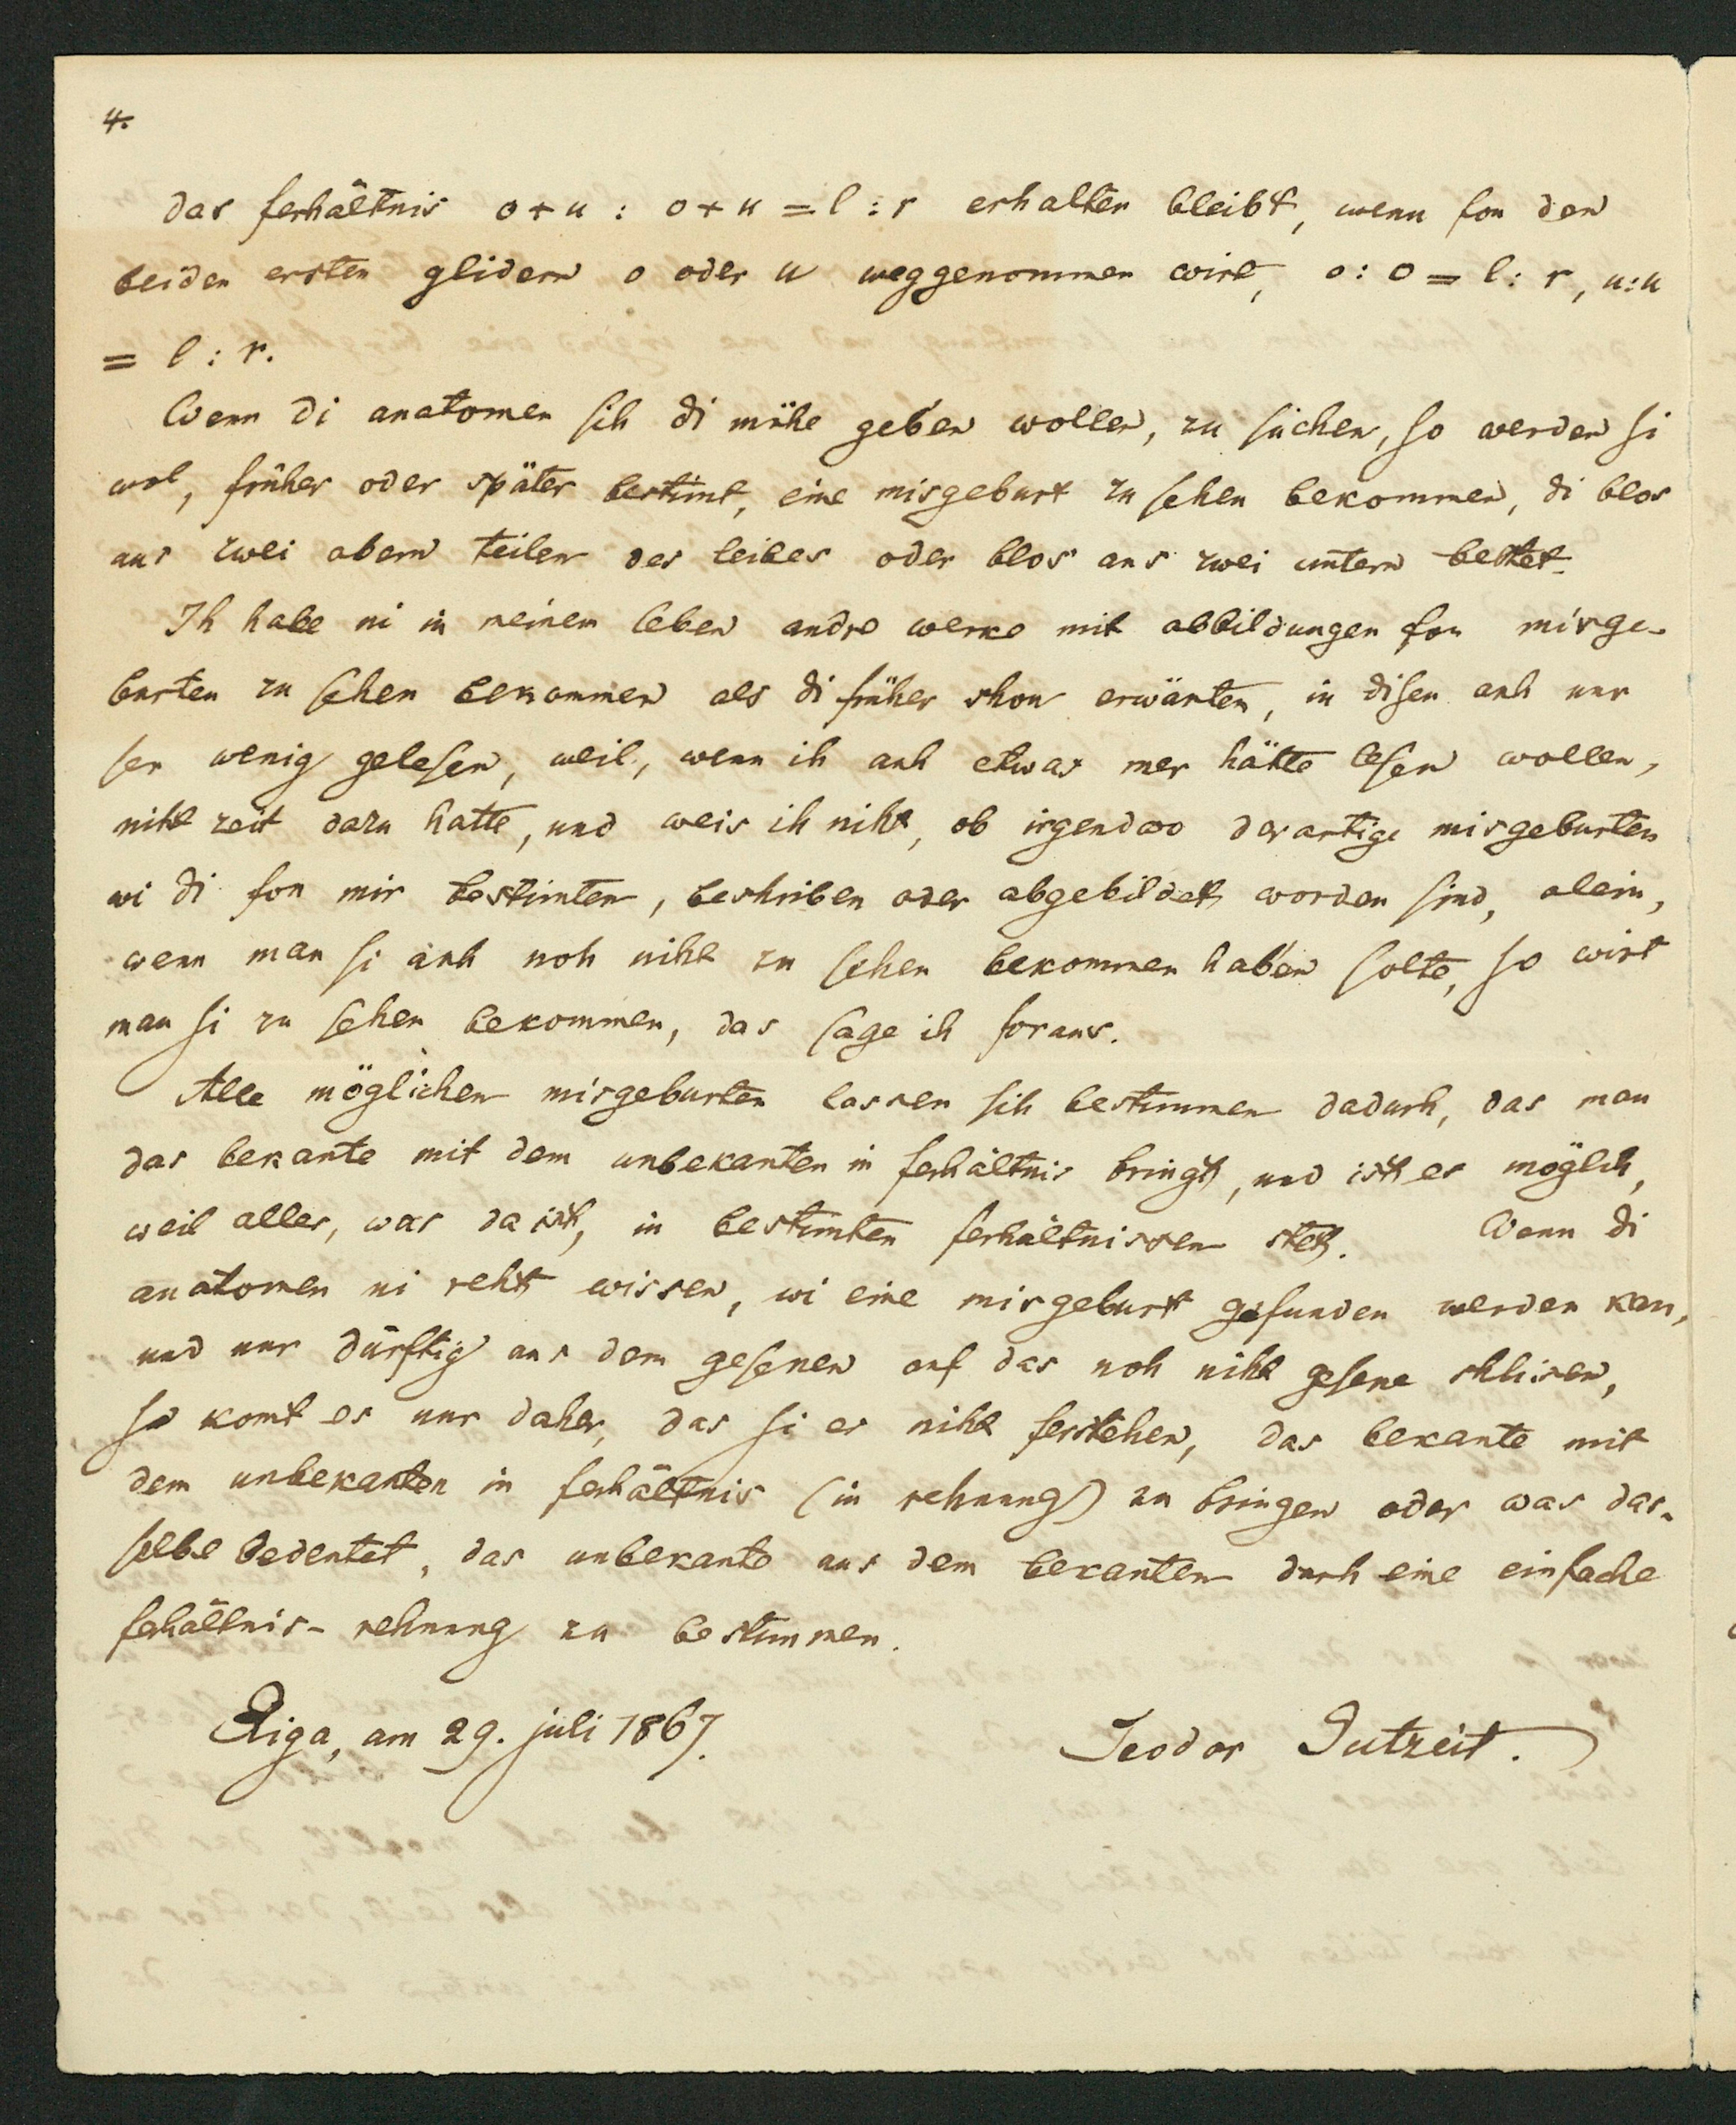 4.
das ferhältnis o+u : o+u = l : r erhalten bleibt, wenn fon den
beiden ersten glidern o oder u weggenommen wirt, o : o = l : r, u : u
= l : r.
Wenn di anatomen sih di mühe geben wollen, zu suchen, so werden si
wol, früher oder später bestimt, eine misgeburt zu sehen bekommen, di blos
aus zwei obern teilen des leibes oder blos aus zwei untern bestet.
Ih habe ni in meinem leben andre werke mit abbildungen fon misge-
burten zu sehen bekommen als di früher shon erwänten, in disen auh nur
ser wenig gelesen, weil, wenn ih auh etwas mer hätte lesen wollen,
niht zeit dazu hatte, und weis ih niht, ob irgendwo derartige misgeburten
wi di fon mir bestimten, beshriben oder abgebildet worden sind, alein,
wenn man si auh noh niht zu sehen bekommen haben solte, so wirt
man si zu sehen bekommen, das sage ih foraus.
Alle möglichen misgeburten lassen sih bestimmen dadurh, das man
das bekante mit dem unbekanten in ferhältnis bringt, und ist es möglih,
weil alles, was da ist, in bestimten ferhältnissen stet. Wenn di
anatomen ni reht wissen, wi eine misgeburt gefunden werden kan,
und nur dürftig aus dem gesenen auf das noh niht gesene shlisen,
so komt es nur daher, das si es niht ferstehen, das bekante mit
dem unbekanten in ferhältnis (in rehnung) zu bringen oder was das-
selbe bedeutet, das unbekante aus dem bekanten durh eine einfache
ferhältnis-rehnung zu bestimmen.
Riga, am 29. juli 1867. Teodor Gutzeit.